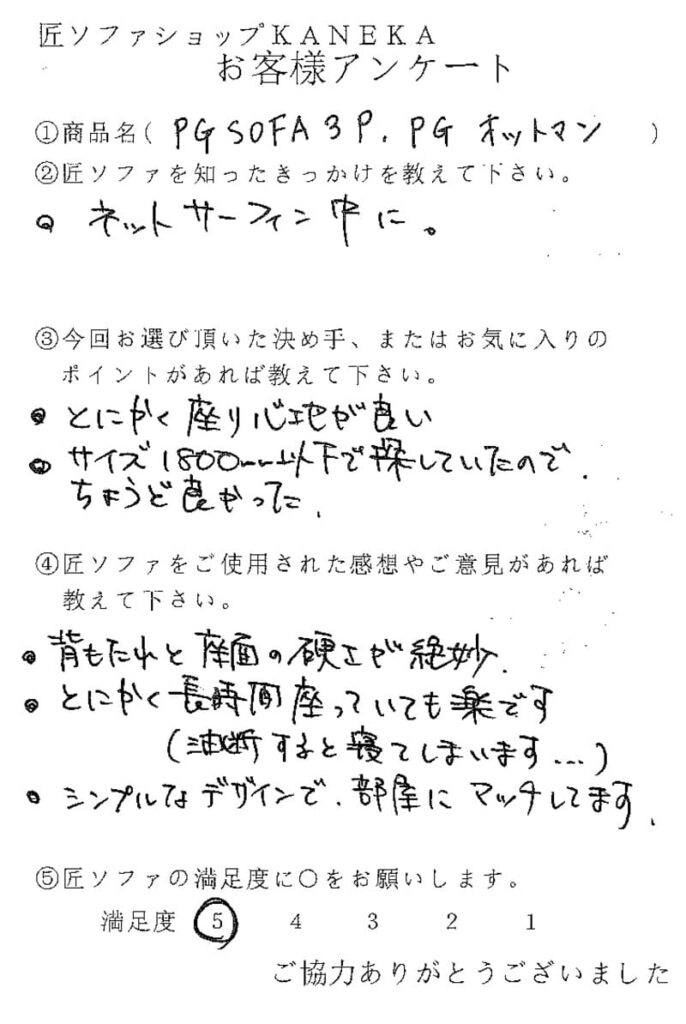 匠ソファショップKANEKA
お客様アンケート
①商品名( PG SOFA 3P. PG オットマン )
②匠ソファを知ったきっかけを教えて下さい。
● ネットサーフィン中に。
③今回お選び頂いた決め手、またはお気に入りの
ポイントがあれば教えて下さい。
● とにかく座り心地が良い
● サイズ1800mm以下で探していたので.
ちょうど良かった.
④匠ソファをご使用された感想やご意見があれば
教えて下さい。
● 背もたれと座面の硬さが絶妙.
● とにかく長時間座っていても楽です
(油断すると寝てしまいます...)
● シンプルなデザインで.部屋にマッチしてます.
⑤匠ソファの満足度に○をお願いします。
満足度 5 4 3 2 1
ご協力ありがとうございました